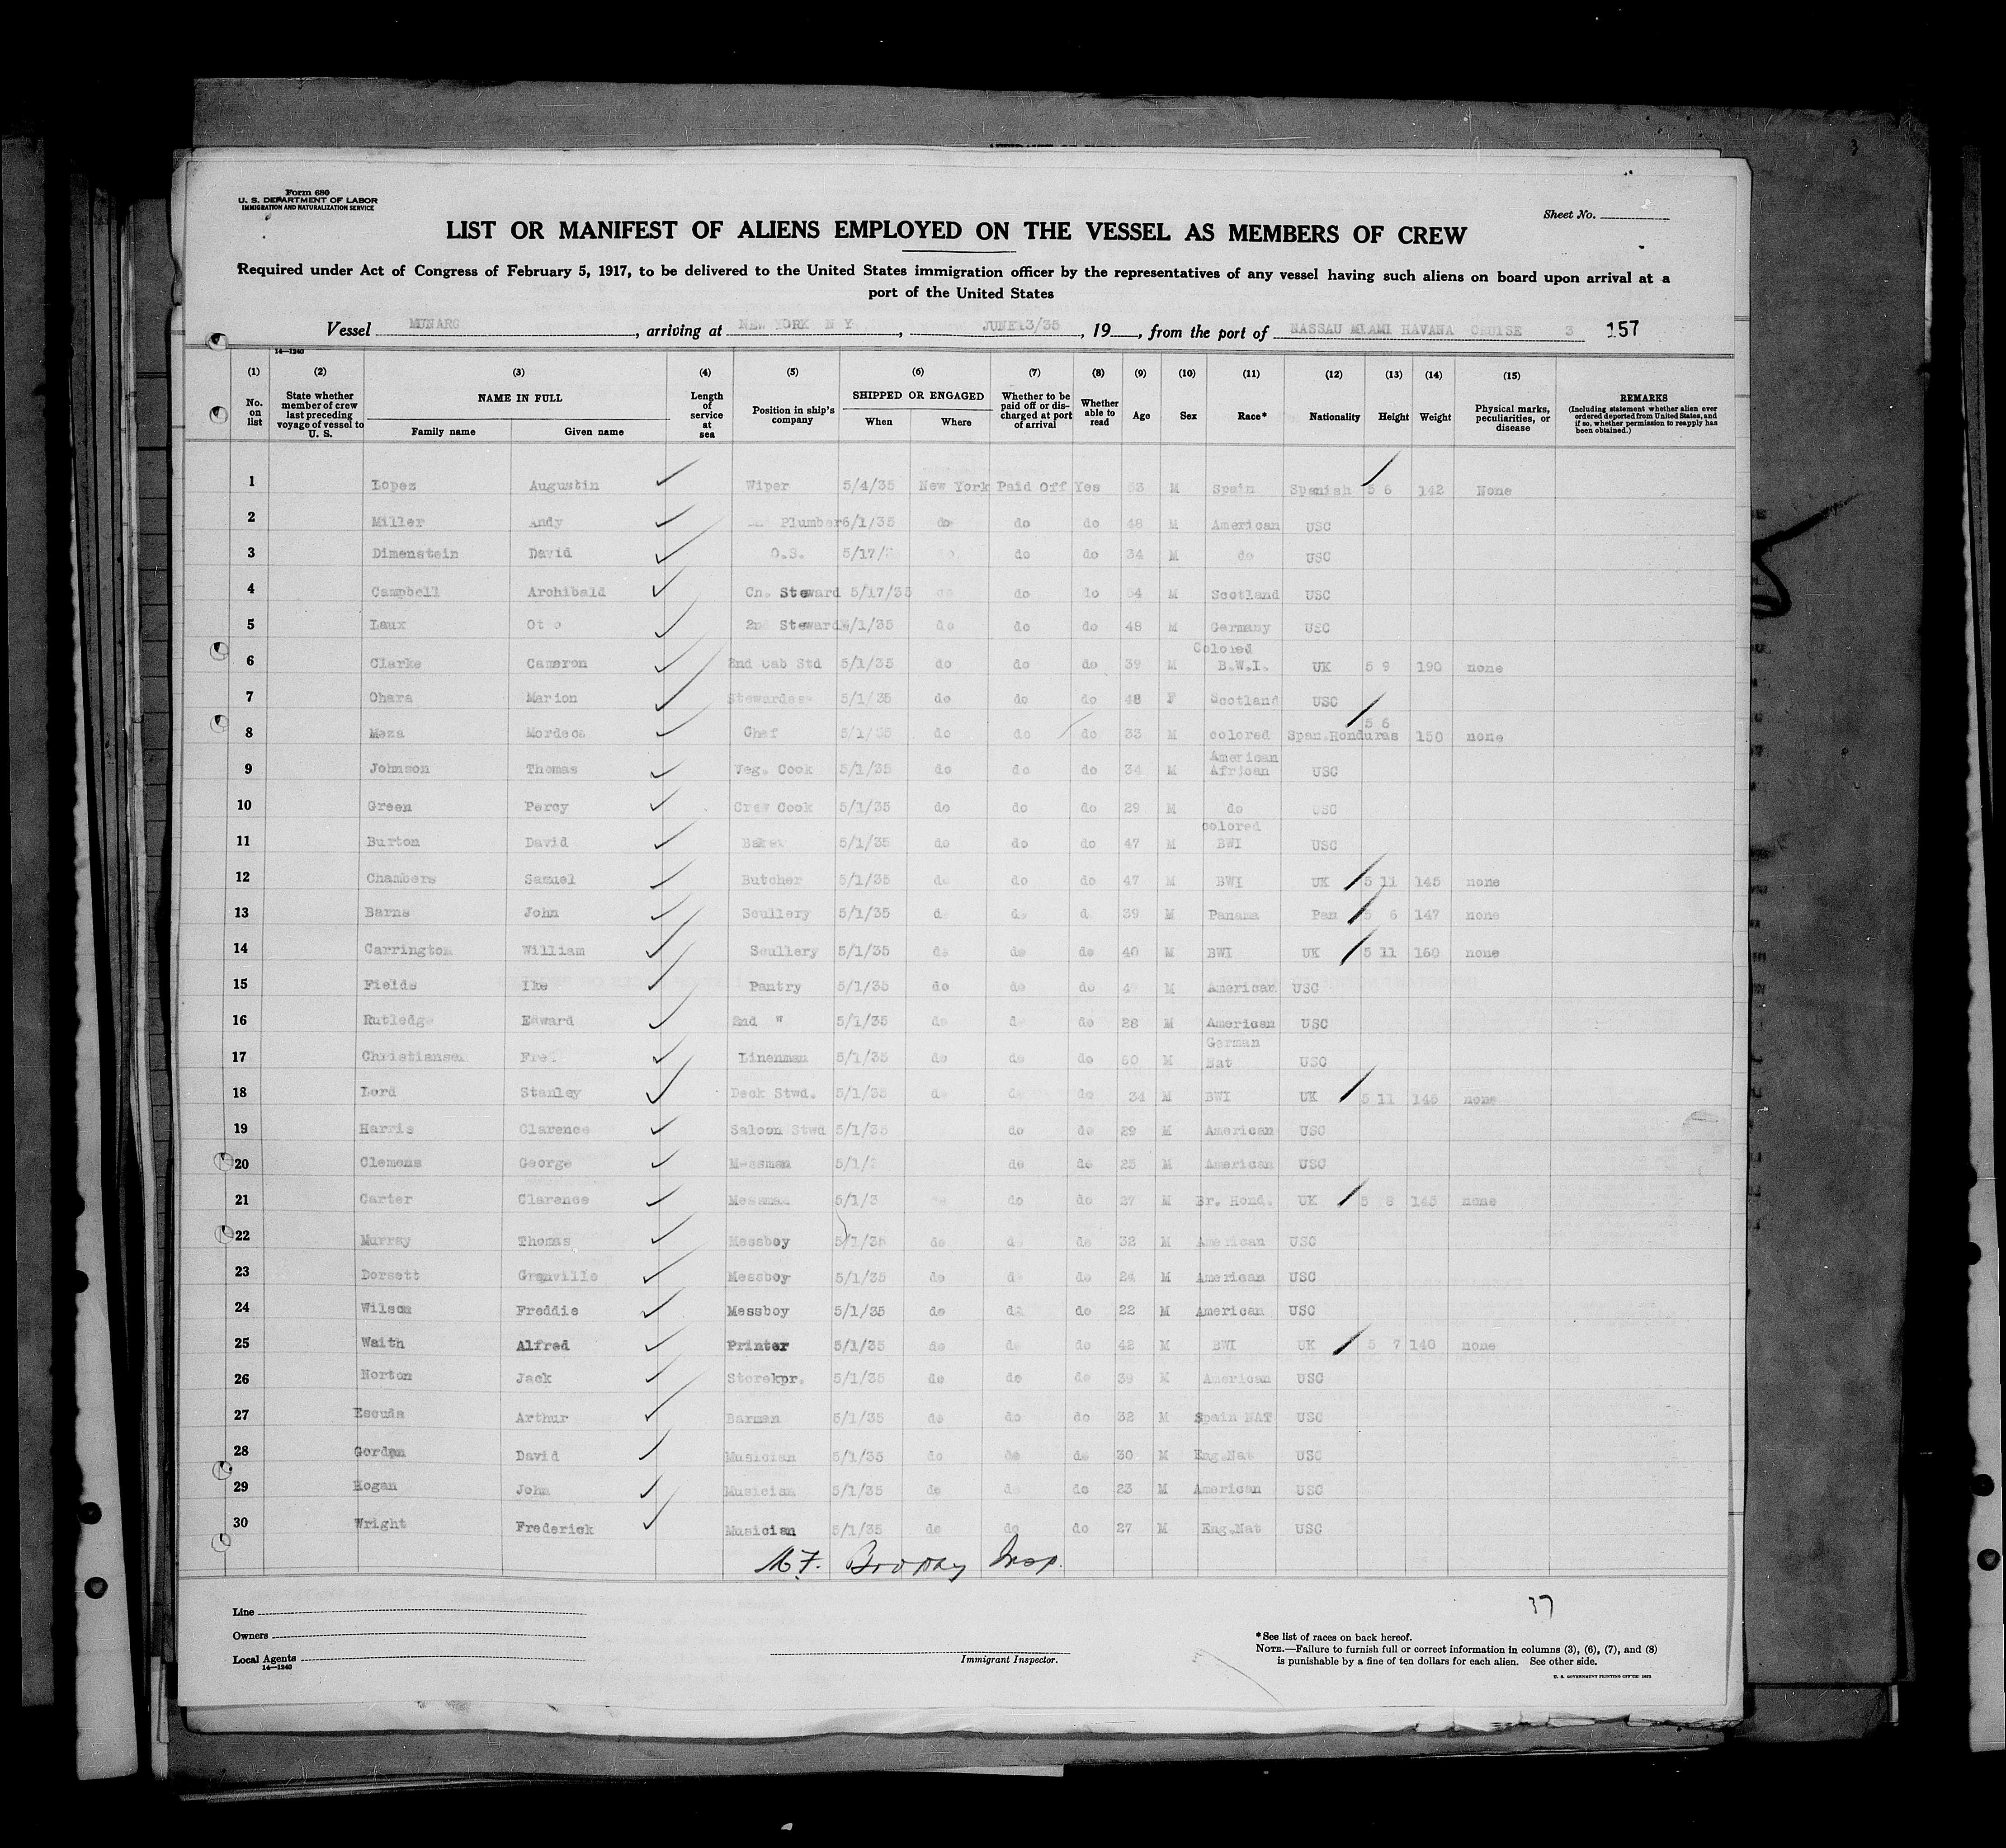 Form 680
U. S. DEPARTMENT OF LABOR
IMMIGRATION AND NATURALIZATION SERVICE
Sheet No.
LIST OR MANIFEST OF ALIENS EMPLOYED ON THE VESSEL AS MEMBERS OF CREW
Required under Act of Congress of February 5, 1917, to be delivered to the United States immigration officer by the representatives of any vessel having such aliens on board upon arrival at a
port of the United States
Vessel MUNARG, arriving at NEW YORK N Y, JUNE13/35, 19, from the port of NASSAU MIAMI HAVANA CRUISE 3 157
14—1240
(1) (2) (3) (4) (5) (6) (7) (8) (9) (10) (11) (12) (13) (14) (15)
No. on list State whether member of crew last preceding voyage of vessel to U. S. NAME IN FULL Family name Given name Length of service at sea Position in ship's company SHIPPED OR ENGAGED When Where Whether to be paid off or discharged at port of arrival Whether able to read Age Sex Race* Nationality Height Weight Physical marks, peculiarities, or disease REMARKS (Including statement whether alien ever ordered deported from United States, and if so, whether permission to reapply has been obtained.)
1 Lopez Augustin Wiper 5/4/35 New York Paid Off Yes M Spain Spanish 5 6 142 None
2 Miller Andy Plumber 6/1/35 do do do 48 M American USC
3 Dimenstein David O.S. 5/17/ do do 34 M do USC
4 Campbell Archibald Ch. Steward 5/17/35 do M Scotland USC
5 Laux Ot o 2n Steward /1/35 do do do 48 M Germany USC
6 Clarke Cameron 2nd Cab Std 5/1/35 do do do 39 M Colored B.W.I. UK 5 9 190 none
7 Ohara Marion Stewardess 5/1/35 do do do 48 F Scotland USC
8 Meza Mordeca Chef 5/1/35 do do do 33 M colored Span.Honduras 5 6 150 none
9 Johnson Thomas Veg. Cook 5/1/35 do do do 34 M American African USC
10 Green Percy Crew Cook 5/1/35 do do do 29 M do USC
11 Burton David Baker 5/1/35 do do do 47 M colored BWI USC
12 Chambers Samuel Butcher 5/1/35 do do do 47 M BWI UK 5 11 145 none
13 Barns John Scullery 5/1/35 d. do d 39 M Panama Pan 5 6 147 none
14 Carrington William Scullery 5/1/35 do do do 40 M BWI UK 5 11 160 none
15 Fields Ike Pantry 5/1/35 do do do 4 M American USC
16 Rutledge Edward 2nd " 5/1/35 do d do 28 M American USC
17 Christiansen Fre Linenman 5/1/35 do do do 50 M German Nat USC
18 Lord Stanley Deck Stwd. 5/1/35 do d do 34 M BWI UK 5 11 145 none
19 Harris Clarence Saloon Stwd 5/1/35 do do 29 M American USC
20 Clemons George Messman 5/1/ do do 25 M American USC
21 Carter Clarence Messman 5/1/3 do do 27 M Br. Hond. UK 5 8 145 none
22 Murray Thomas Messboy 5/1/35 do d do 32 M American USC
23 Dorsett Granville Messboy 5/1/35 do d do 24 M American USC
24 Wilson Freddie Messboy 5/1/35 do do do 22 M American USC
25 Waith Alfred Printer 5/1/35 do do do 42 M BWI UK 5 7 140 none
26 Norton Jack Storekpr. 5/1/35 do do do 39 M American USC
27 Escuda Arthur Barman 5/1/35 do do do 32 M Spain NAT USC
28 Gordon David Musician 5/1/35 do do do 30 M Eng.Nat USC
29 Hogan John Musician 5/1/35 do do do 23 M American USC
30 Wright Frederick Musician 5/1/35 do do do 27 M Eng.Nat USC
Insp.
37
Line
Owners
Local Agents
14—1240
Immigrant Inspector.
*See list of races on back hereof.
NOTE.—Failure to furnish full or correct information in columns (3), (6), (7), and (8)
is punishable by a fine of ten dollars for each alien. See other side.